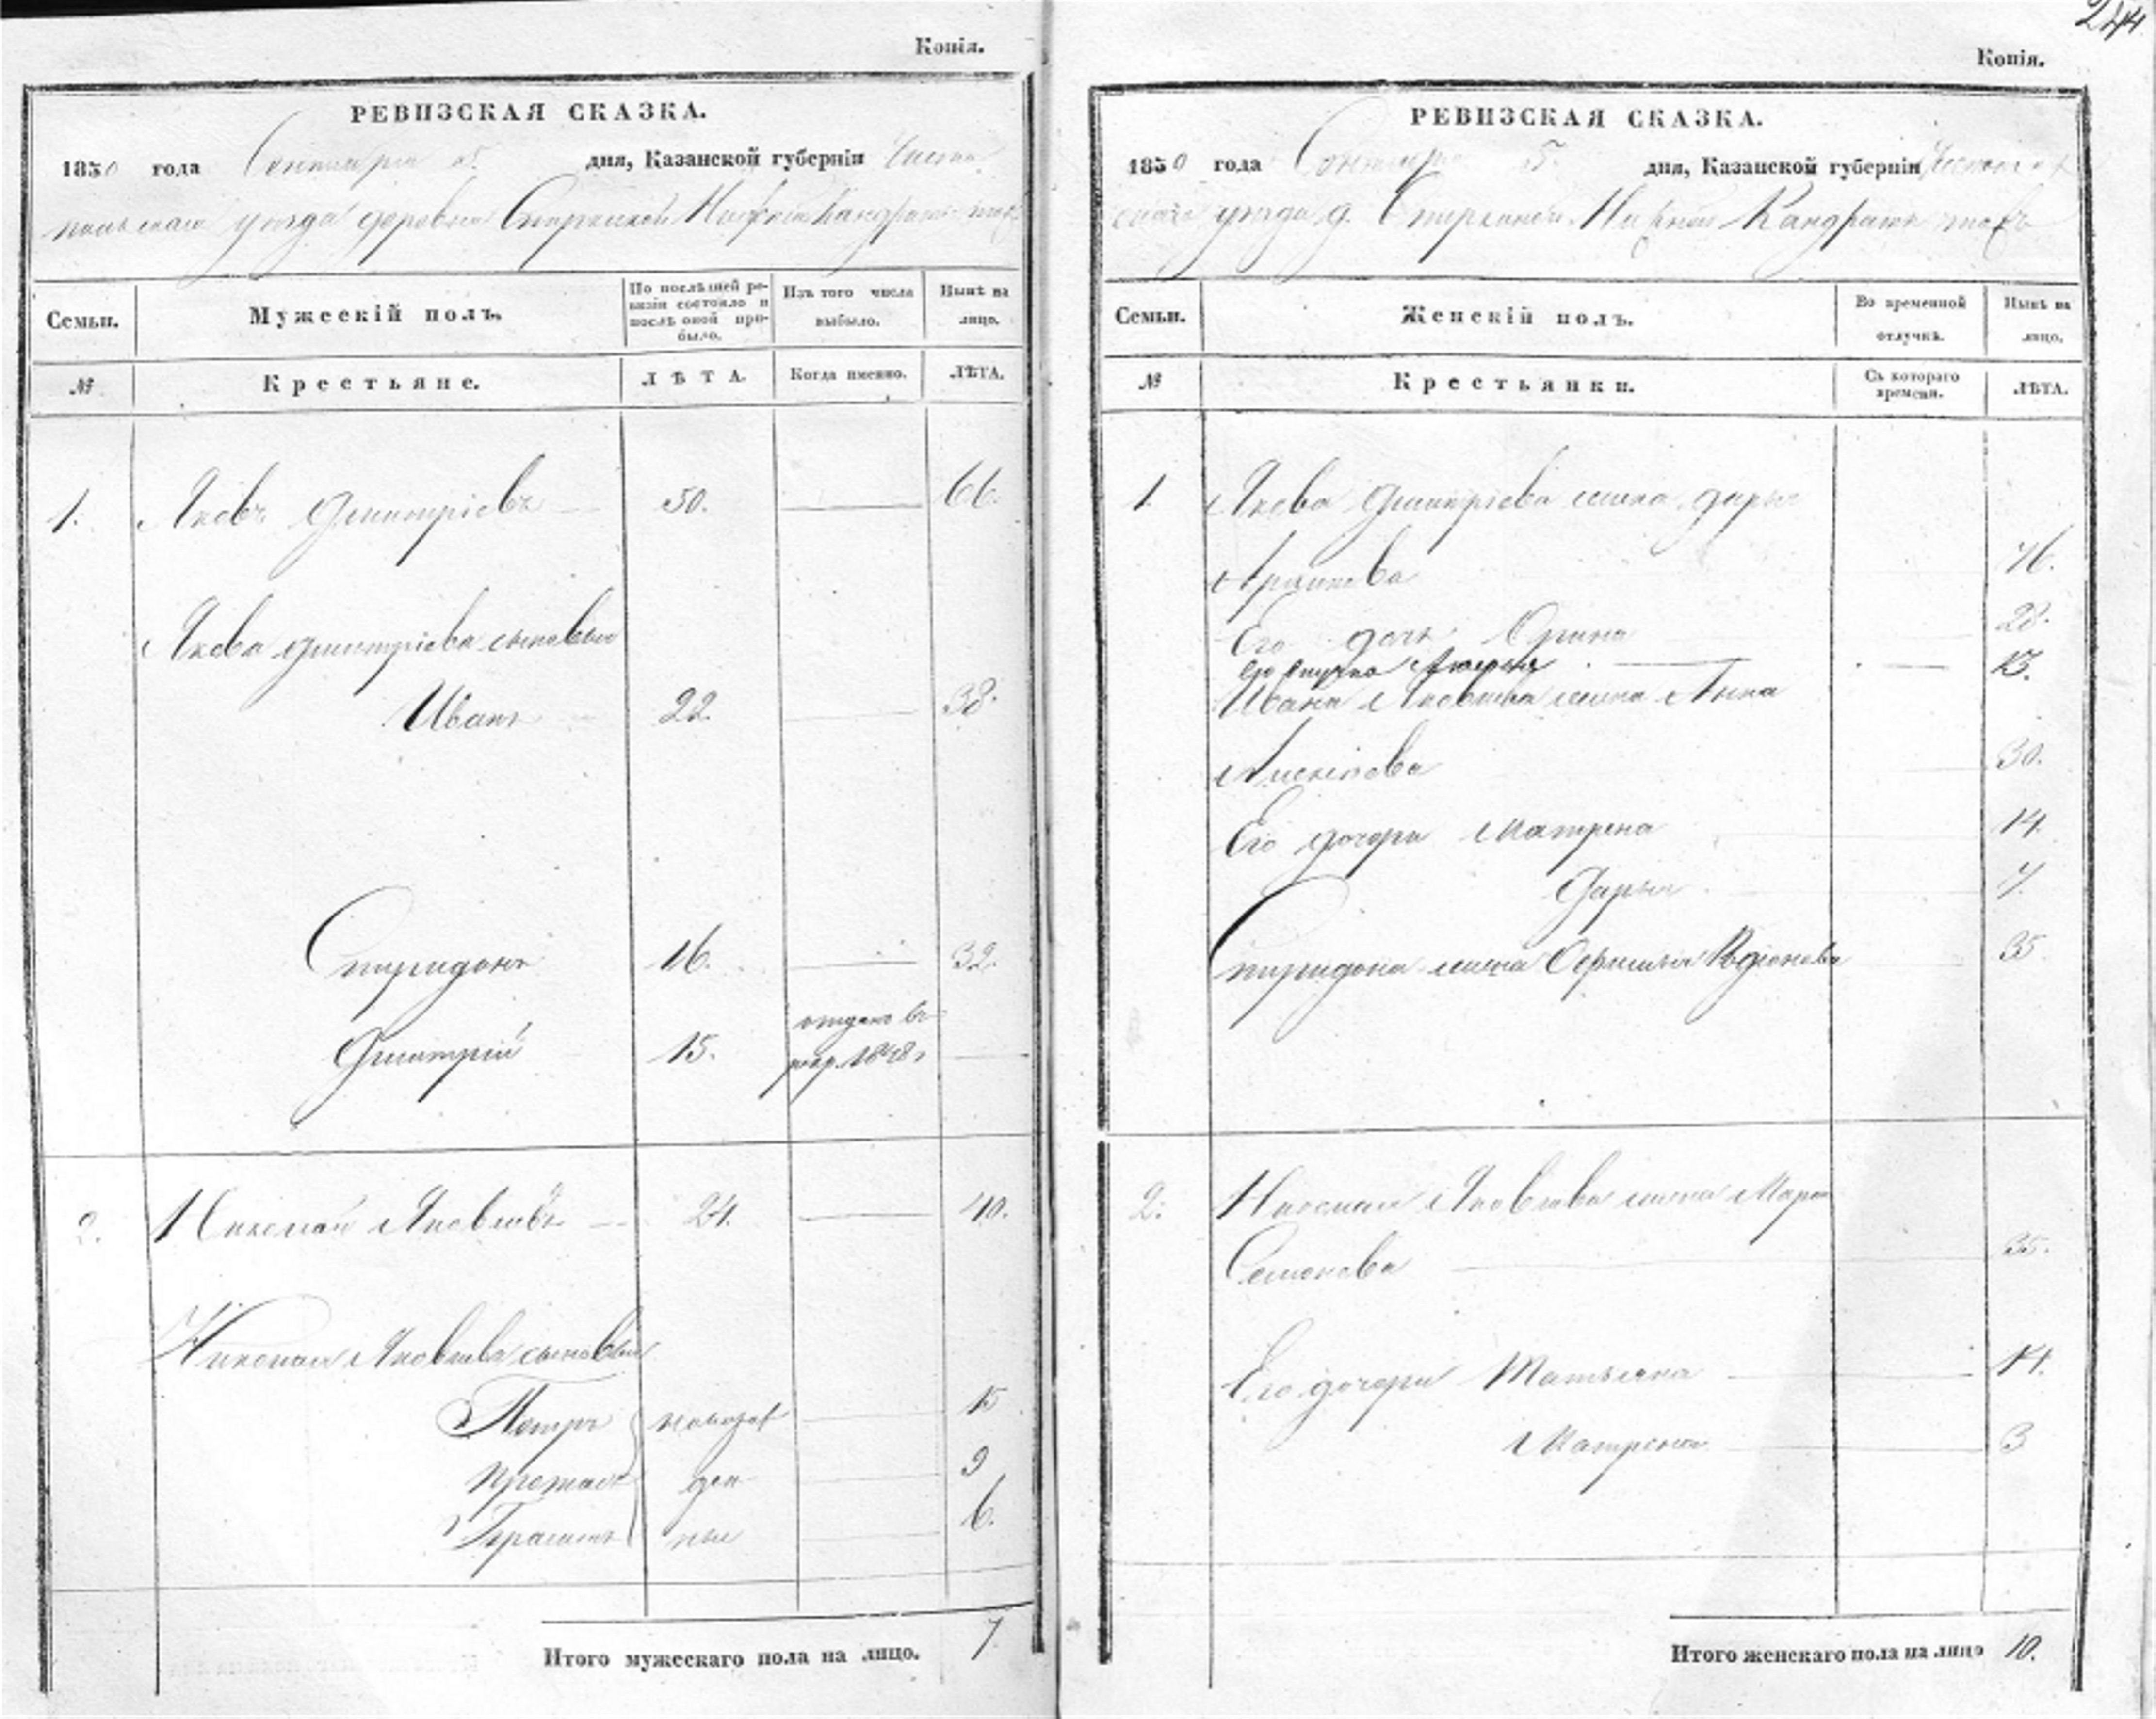 Копія.
РЕВИЗСКАЯ СКАЗКА.
1850 года Сентября 5 дня, Казанской губерніи Чисто
польскаго уѣзда деревни Нижней Кандраты
Семьи. Мужескій полъ. По послѣдней ревизіи состояло и послѣ оной прибыло. Изъ того числа выбыло. Нынѣ на лицо.
№ Крестьяне. ЛѢТА. Когда именно. ЛѢТА.
1. Яковъ Дмитріевъ 50. 66.
Якова Дмитріева сыновья
Иванъ 22. 38.
Спиридонъ 16. 32.
отданъ въ
Дмитрій 15. рекр. 1848 г.
2. Николай Яковлевъ 24. 40.
Николая Яковлева сыновья
Петръ новорож 15
Протасъ ден 9
Герасимъ ные 6.
Итого мужескаго пола на лицо. 7
244
Копія.
РЕВИЗСКАЯ СКАЗКА.
1850 года Сентября 5. дня, Казанской губерніи Чистополь
скаго уѣзда д. Нижней Кандраты
Семьи. Женскій полъ. Во временной отлучкѣ. Нынѣ на лицо.
№ Крестьянки. Съ котораго времени. ЛѢТА.
1. Якова Дмитріева жена Дарья
46.
Его дочь Орина 28.
его внучка 13.
Ивана Яковлева жена Анна
Алексѣева 30.
Его дочери Матрена 14.
Дарья 7.
Спиридона жена Родіонова 35
2. Николая Яковлева жена Марья
Семенова 35.
Его дочери Татьяна 14.
Матрена 3
Итого женскаго пола на лицо 10.